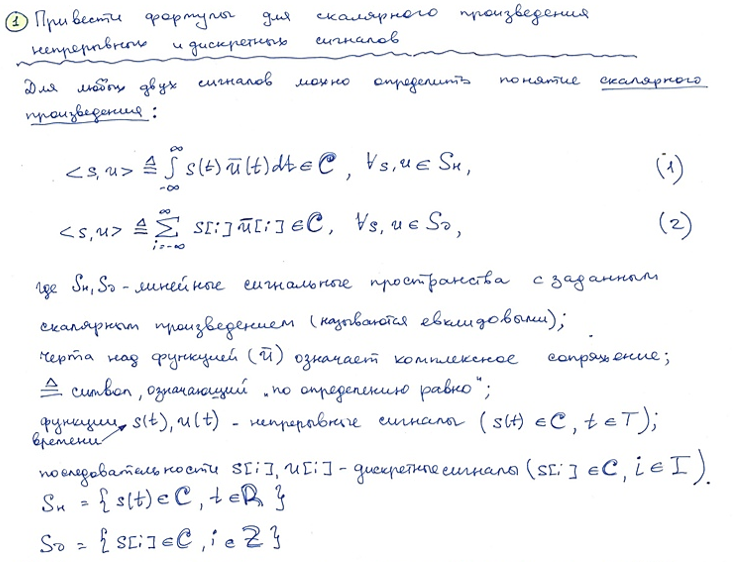 ① Привести формулы для скалярного произведения
непрерывных и дискретных сигналов
Для любых двух сигналов можно определить понятие скалярного
произведения:
<s,u> ≜ ∫_{-∞}^{∞} s(t) ū(t) dt ∈ ℂ, ∀s,u ∈ Sн, (1)
<s,u> ≜ ∑_{i=-∞}^{∞} s[i] ū[i] ∈ ℂ, ∀s,u ∈ Sд, (2)
где Sн, Sд - линейные сигнальные пространства с заданным
скалярным произведением (называются евклидовыми);
черта над функцией (ū) означает комплексное сопряжение;
≜ символ, означающий „по определению равно";
функции времени s(t), u(t) - непрерывные сигналы (s(t) ∈ ℂ, t ∈ T);
последовательности s[i], u[i] - дискретные сигналы (s[i] ∈ ℂ, i ∈ I).
Sн = {s(t) ∈ ℂ, t ∈ ℝ}
Sд = {s[i] ∈ ℂ, i ∈ ℤ}